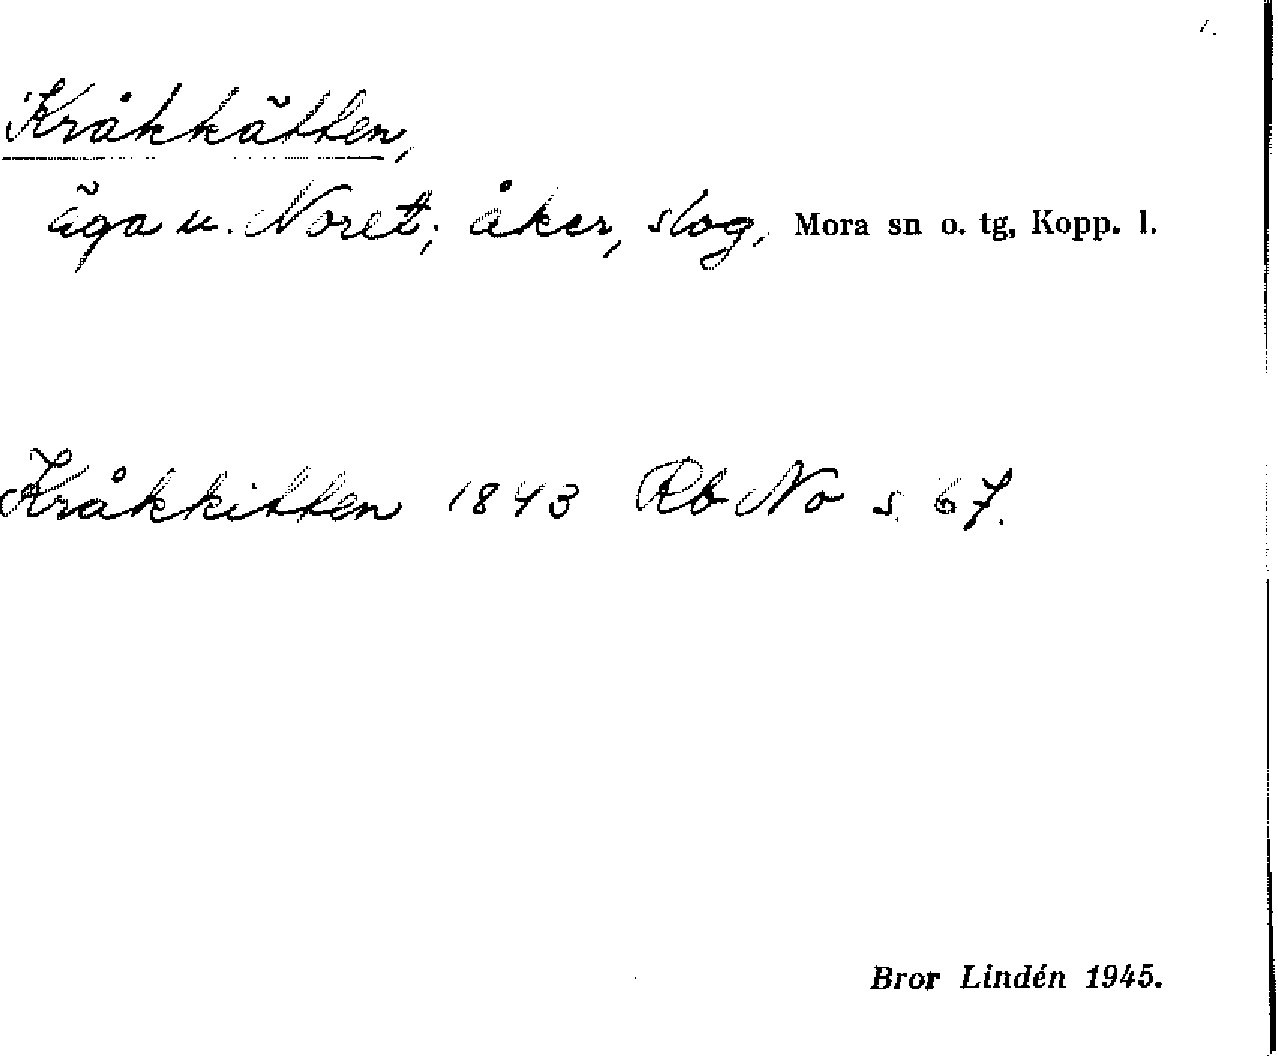 1.
Kråkkätten,
äga u. Noret; åker, slog, Mora sn o. tg, Kopp. l.
Kråkkitten 1843 Rb No s. 67.
Bror Lindén 1945.